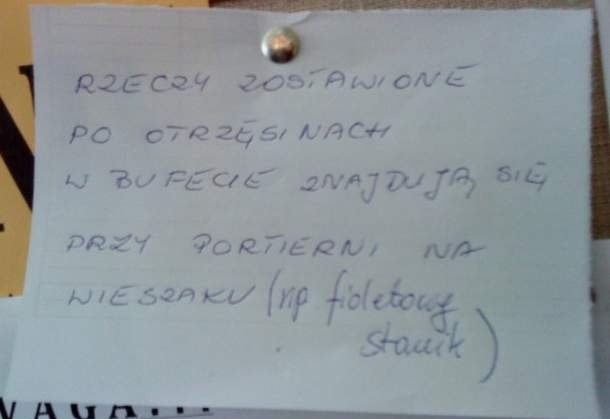 RZECZY ZOSTAWIONE
PO OTRZĘSINACH
W BUFECIE ZNAJDUJĄ SIĘ
PRZY PORTIERNI NA
WIESZAKU (np fioletowy
stanik)
VAGA!!!